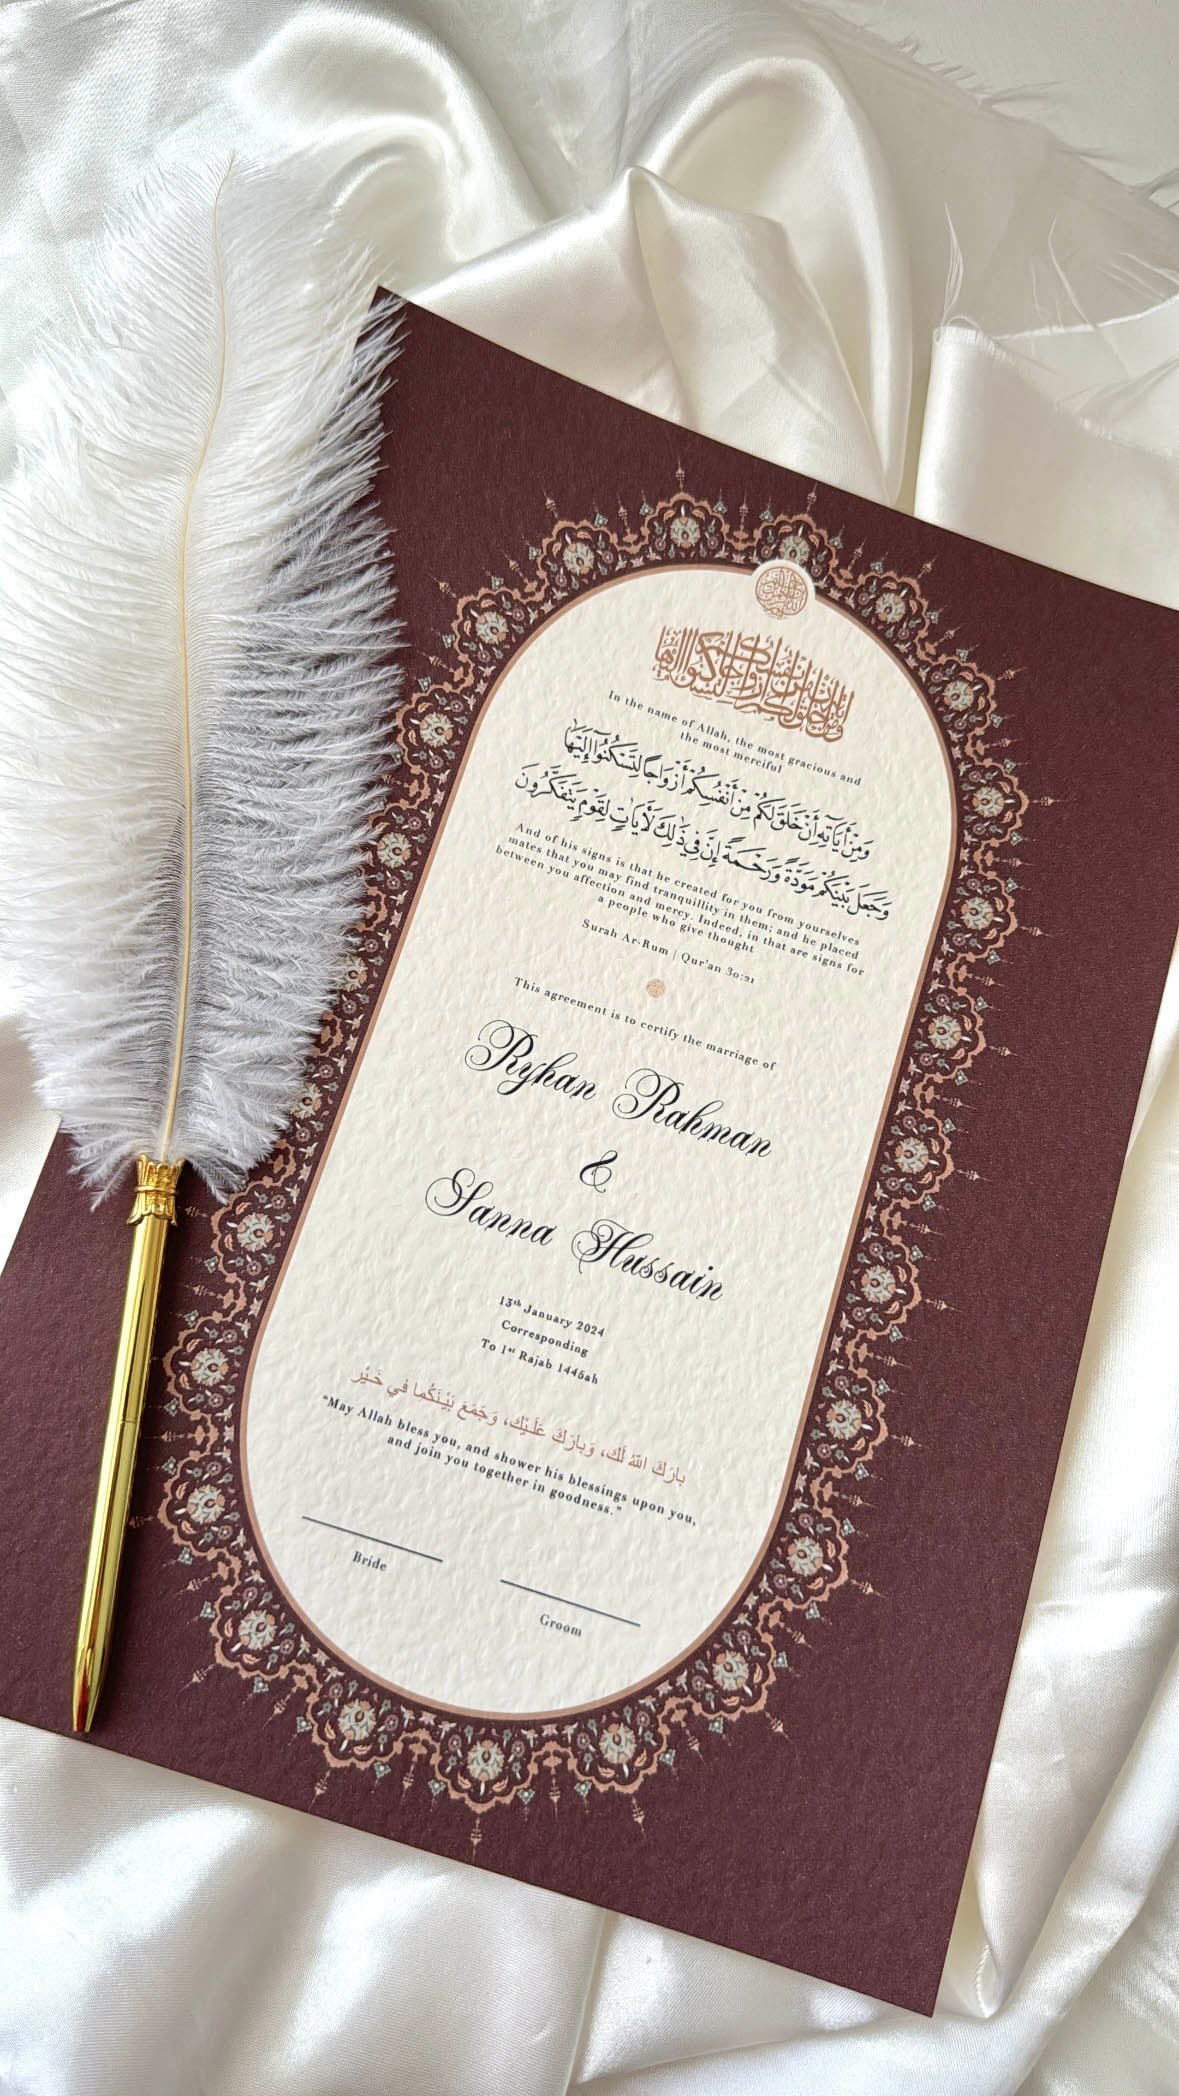 In the name of Allah, the most gracious and
the most merciful
وَمِنْ آيَاتِهِ أَنْ خَلَقَ لَكُمْ مِنْ أَنْفُسِكُمْ أَزْوَاجًا لِتَسْكُنُوا إِلَيْهَا
وَجَعَلَ بَيْنَكُمْ مَوَدَّةً وَرَحْمَةً إِنَّ فِي ذَٰلِكَ لَآيَاتٍ لِقَوْمٍ يَتَفَكَّرُونَ
And of his signs is that he created for you from yourselves
mates that you may find tranquillity in them; and he placed
between you affection and mercy. Indeed, in that are signs for
a people who give thought
Surah Ar-Rum | Qur'an 30:21
This agreement is to certify the marriage of
Ryhan Rahman
&
Sanna Hussain
13th January 2024
Corresponding
To 1st Rajab 1445ah
بارَكَ اللهُ لَك، وَبارَكَ عَلَـيْك، وَجَمَعَ بَيْـنَكُما في خَـيْر
“May Allah bless you, and shower his blessings upon you,
and join you together in goodness.”
Bride
Groom